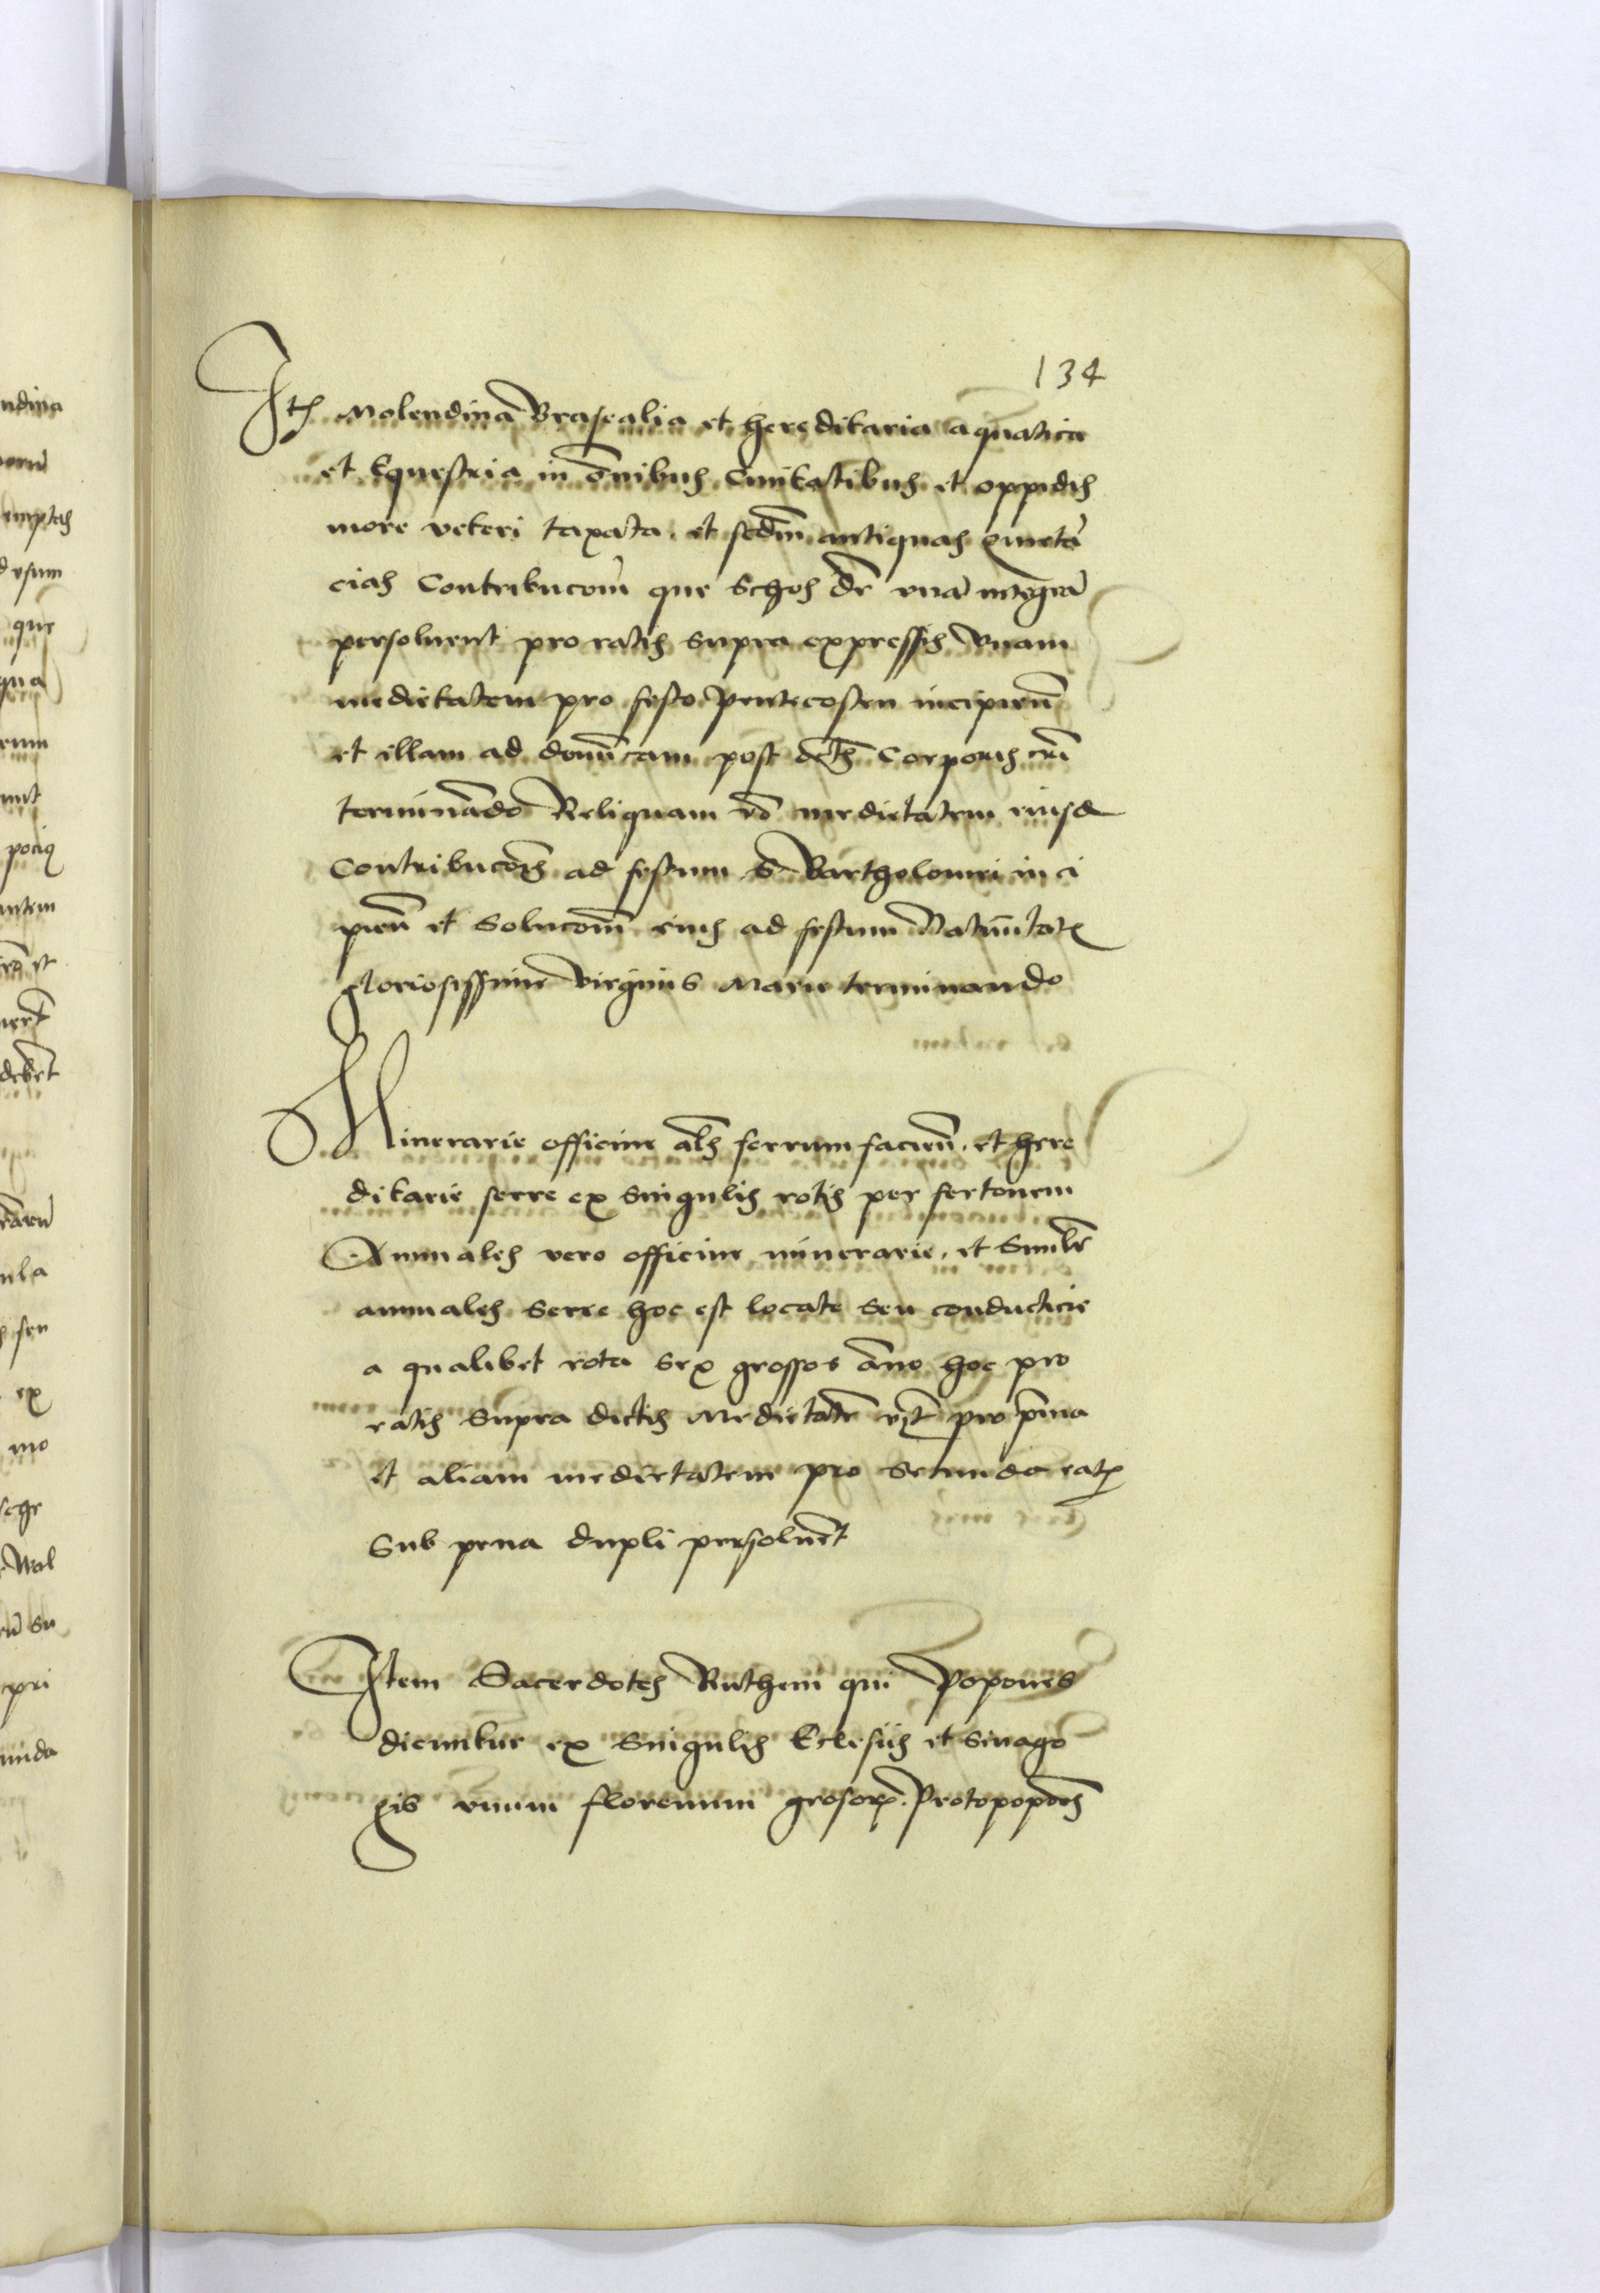 134
Itē Molendina Brasealia et hereditaria aquatica
et Equestria in ōnibus Ciuitatibus et oppidis
more veteri taxata et sedm antiquas quieta
cias Contribucōm que Schos dr̄ vnā integrā
persoluent pro ratis supra expressis vnam
medietatem pro festo Pentecosten incipien̄
et illam ad domīcam post octās Corporis cri
terminādo Reliquam vō medietatem eiusd
Contribucōis ad festum S Bartholomei in ci
pien̄ et Solucōm eius ad festum Natiuitatis
gloriosissime Virginis Marie terminando
Minerarie officine als ferrum facien̄ et here
ditarie serre ex singulis rotis per fertonem
Annuales vero officine minerarie et Simlr̄
annuales Serre hoc est locate seu conducticie
a qualibet rota sex grossos āno hoc pro
ratis Supra dictis Medietatē vz̄ pro pīma
et aliam medietatem pro Secunda ratis
Sub pena dupli persoluēt
Item Sacerdotes Rutheni qui Popones
dicuntur ex Singulis Eclesiis et Sinago
gis vnum florenum grosorꝝ Protopopōes